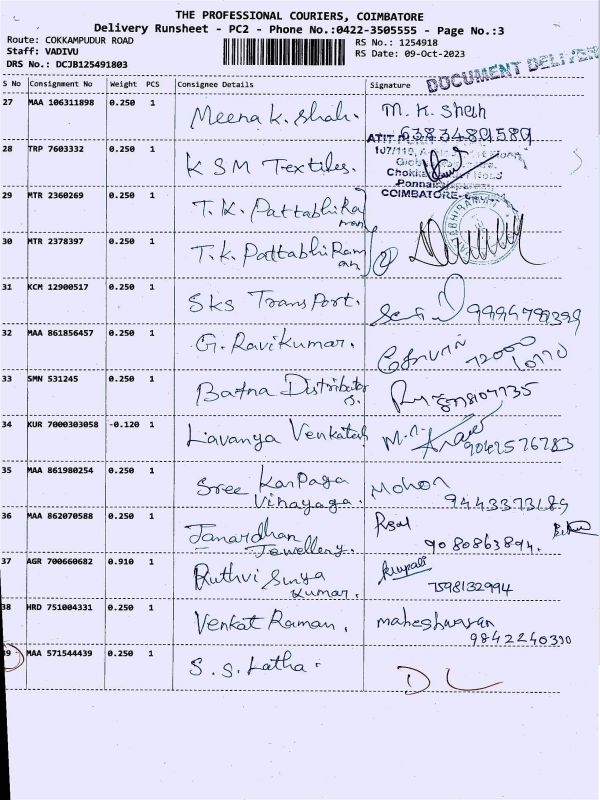 THE PROFESSIONAL COURIERS, COIMBATORE
Delivery Runsheet - PC2 - Phone No.:0422-3505555 - Page No.:3
Route: COKKAMPUDUR ROAD RS No.: 1254918
Staff: VADIVU RS Date: 09-Oct-2023
DRS No.: DCJB125491803 DOCUMENT DELIVER
S No Consignment No Weight PCS Consignee Details Signature
27 MAA 106311898 0.250 1 Meena K. Shah. M. K. Shah
6383489589
28 TRP 7603332 0.250 1 KSM Textiles.
107/110,
Chokka
Ponnai
COIMBATORE
29 MTR 2360269 0.250 1 T. K. Pattabhi Ra
man
30 MTR 2378397 0.250 1 T. K. Pattabhi Ram
an 2
31 KCM 12900517 0.250 1 SKS TransPort. 9994799399
32 MAA 861856457 0.250 1 G. Ravikumar.
33 SMN 531245 0.250 1 Bafna Distributor
s.
34 KUR 7000303058 -0.120 1 Lavanya Venkatesh 9042576783
35 MAA 861980254 0.250 1 Sree Karpaga Mohon
Vinayaga.
36 MAA 862070588 0.250 1 Janardhan
Jewellery. 9080863894.
37 AGR 700660682 0.910 1 Ruthvi Surya Rupali
Kumar. 7598132994
38 HRD 751004331 0.250 1 Venkat Raman. maheshwaran
9842240390
39 MAA 571544439 0.250 1 S. S. Latha. DL